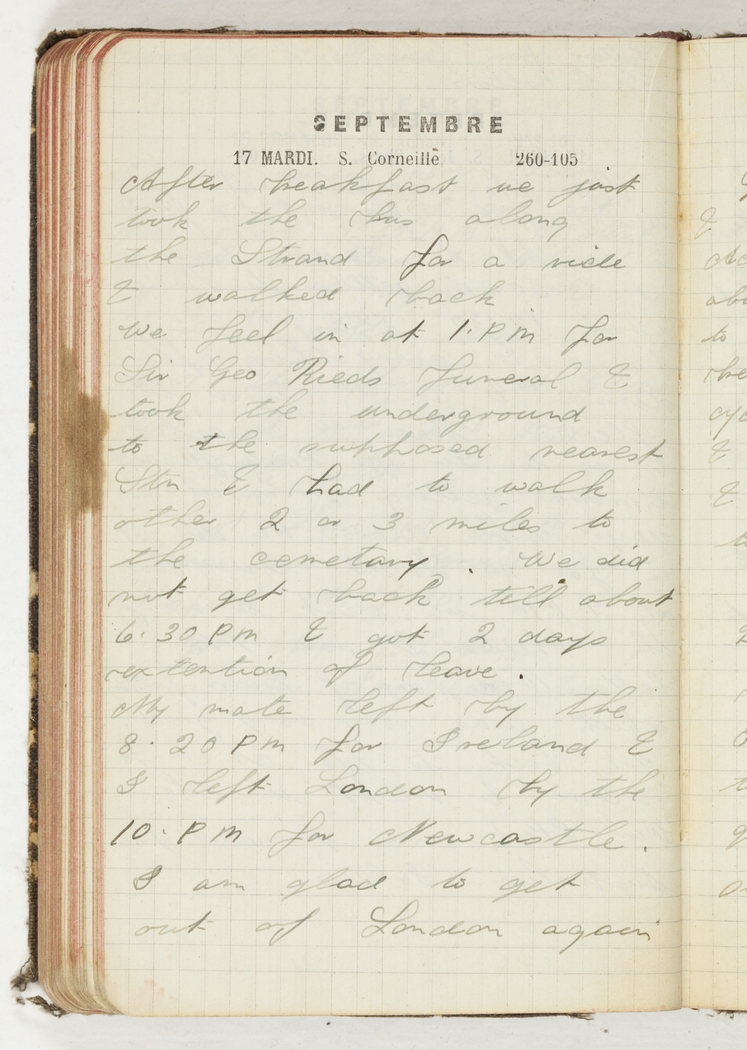 SEPTEMBRE
17 MARDI. S. Corneille 260-105
After breakfast we just
took the bus along
the Strand for a ride
& walked back
We feel in at 1. P m for
Sir Geo Rieds funeral &
took the underground
to the supposed nearest
Stn & had to walk
other 2 or 3 miles to
the cemetary. We did
not get back till about
6. 30 P m & got 2 days
extention of leave.
My mate left by the
8. 20 P m for Ireland &
I left London by the
10. P m for Newcastle.
I am glad to get
out of London again